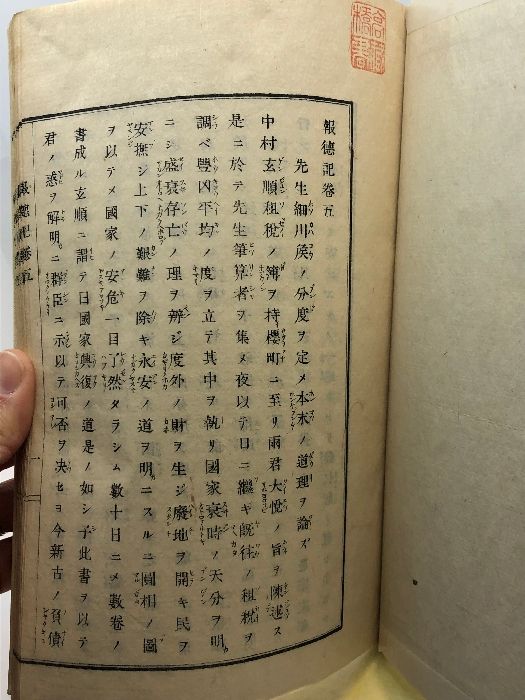 報德記卷五
先生細川矦ノ分度ヲ定メ本末ノ道理ヲ論ズ
中村玄順租税ノ簿ヲ持櫻町ニ至リ兩君大悅ノ旨ヲ陳述ス
是ニ於テ先生筆算者ヲ集メ夜以テ日ニ繼ギ既往ノ租税ヲ
調ベ豐凶平均ノ度ヲ立テ其中ヲ執リ國家衰時ノ天分ヲ明
ニシ盛衰存亡ノ理ヲ辨ジ度外ノ財ヲ生ジ廢地ヲ開キ民ヲ
安撫シ上下ノ艱難ヲ除キ永安ノ道ヲ明ニスルニ圓相ノ圖
ヲ以テメ國家ノ安危一目了然タラシム數十日ニメ數卷ノ
書成ル玄順ニ謂テ曰國家興復ノ道是ノ如シ子此書ヲ以テ
君ノ惑ヲ解明ニ群臣ニ示以テ可否ヲ决セヨ今新古ノ負債